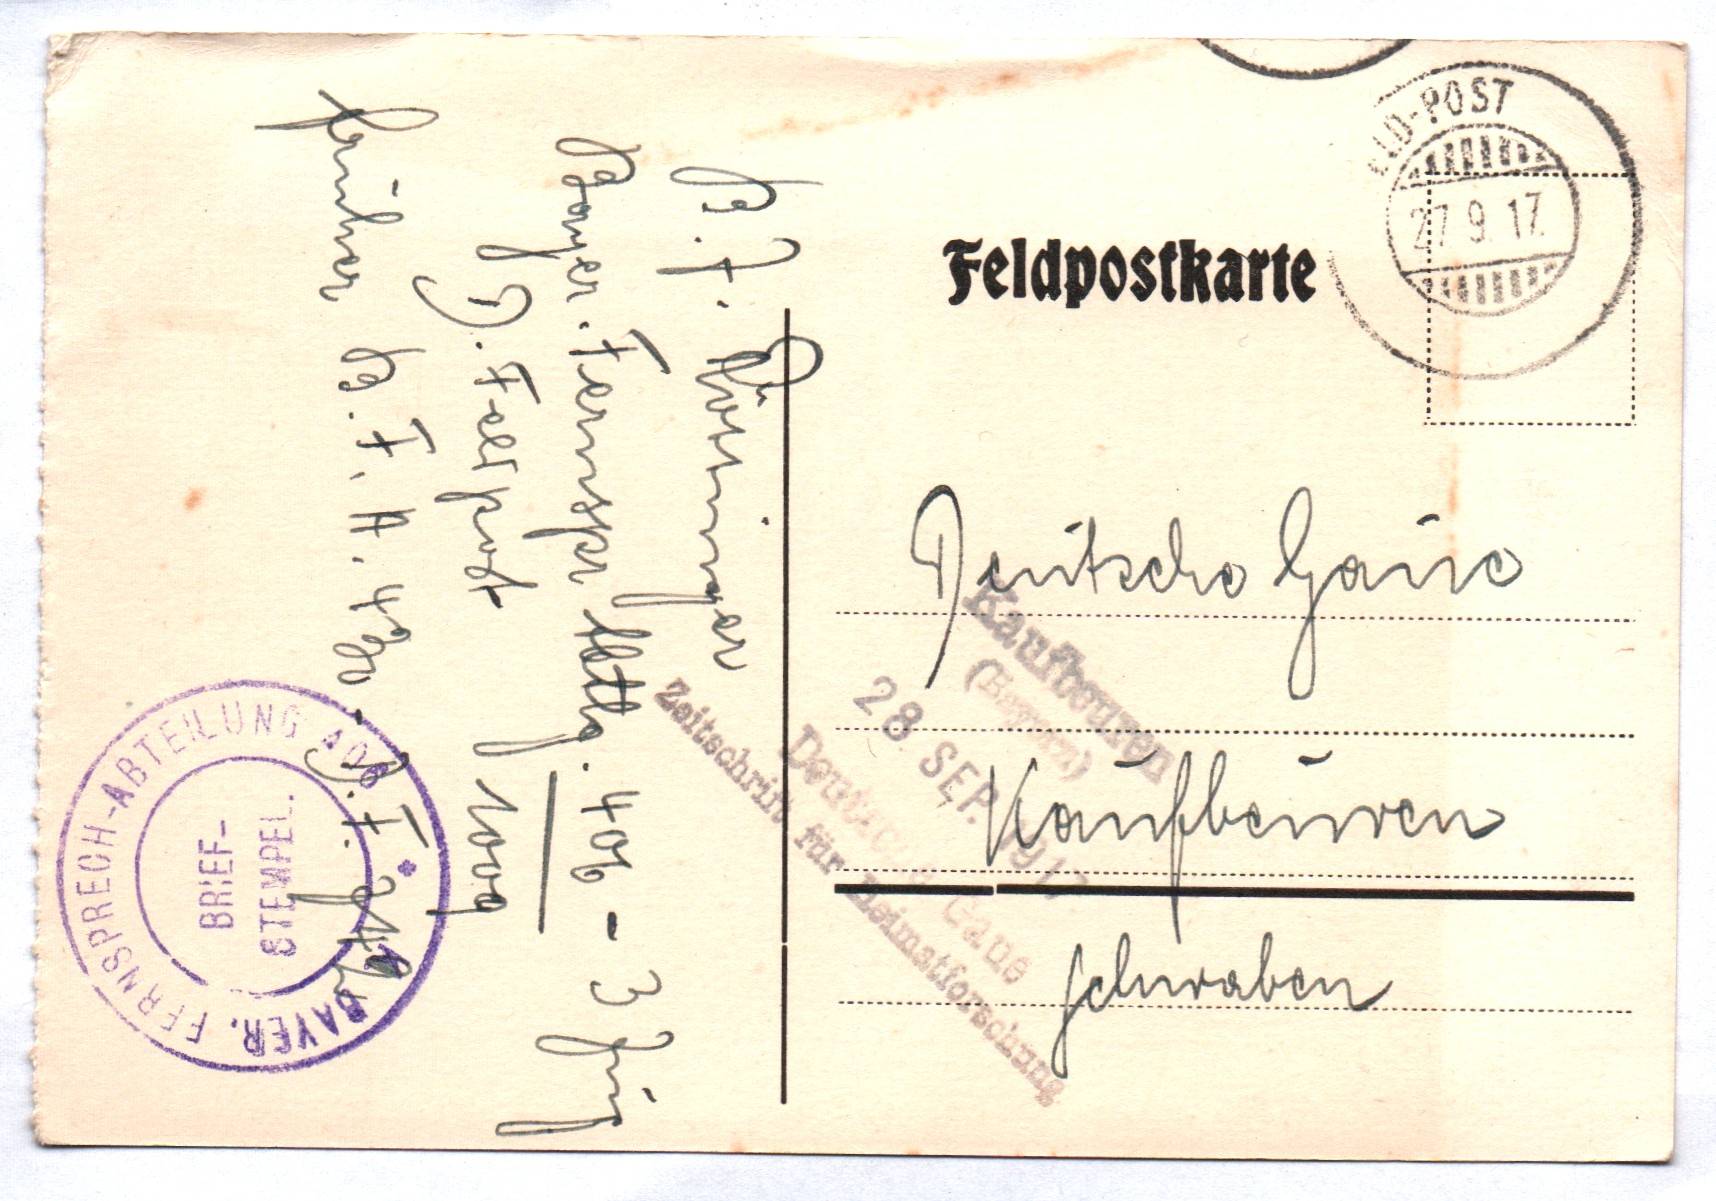 Feldpostkarte
FELD-POST
27 9. 17.
Deutsche Gaue
Kaufbeuren
Schwaben
Kaufbeuren
(Bayern)
28 SEP. 1917
Deutsche Gaue
Zeitschrift für Heimatforschung
Bayer. Fernspr Abtlg. 406 - 3 Zug
D. Feldpost 1009
früher B. F. A. 4
BAYER. FERNSPRECH-ABTEILUNG 406
BRIEF-
STEMPEL.